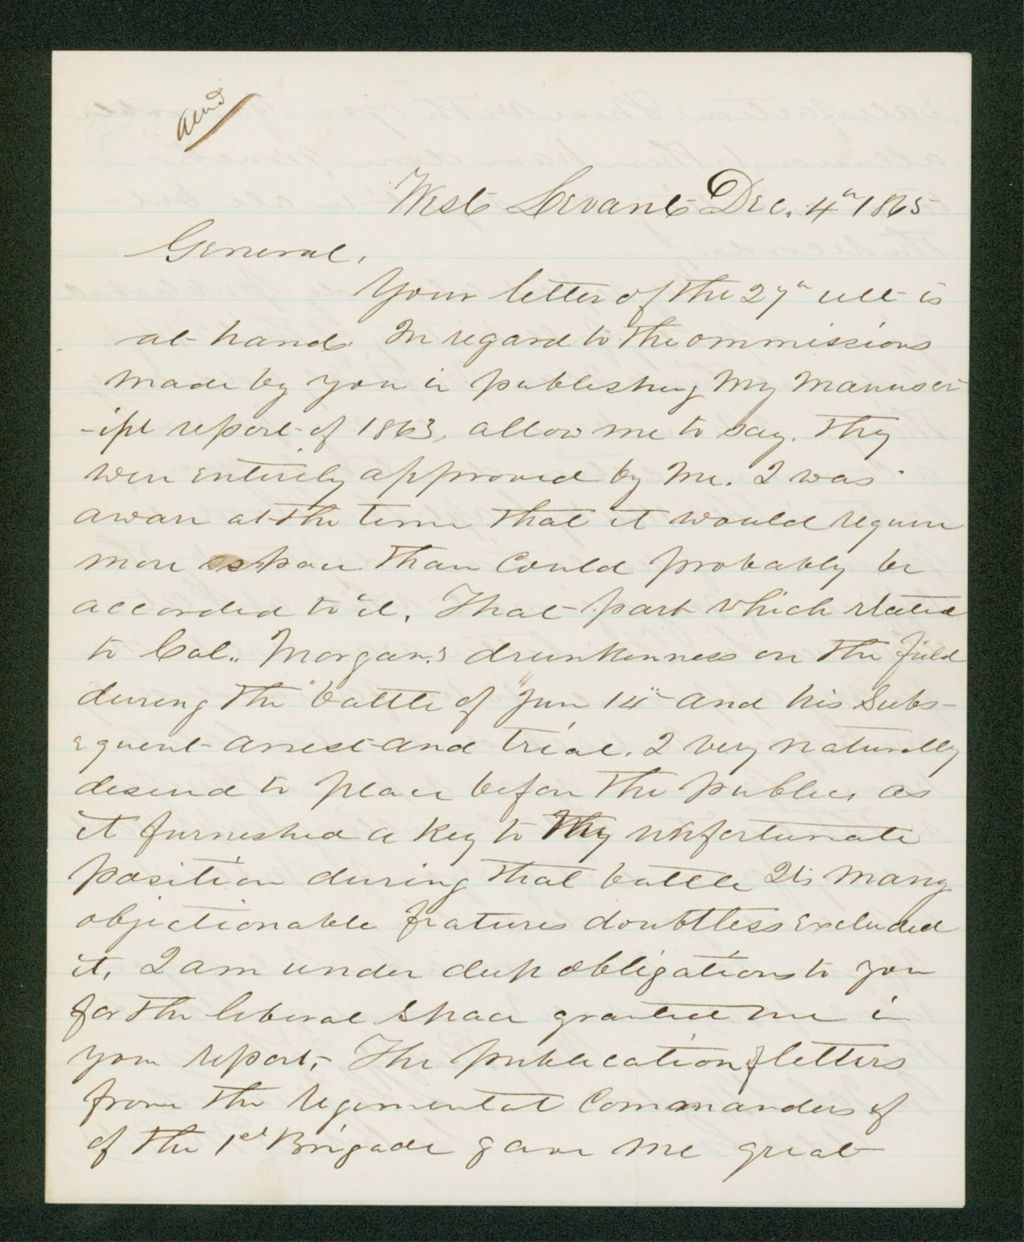 West Levant Dec. 4th 1865
General,
Your letter of the 27th ult is
at hand. In regard to the ommissions
made by you in publishing my manuscr
-ipt report of 1863, allow me to say, they
were entirely approved by me. I was
aware at the time that it would require
more space than could probably be
accorded to it. That part which related
to Col.. Morgan's drunkenness on the field
during the battle of "June 14th" and his subs-
equent arrest and trial. I very naturally
desired to place before the public, as
it furnished a key to my unfortunate
position during that battle Its many
objectionable features doubtless excluded
it. I am under deep obligations to you
for the liberal space granted me in
your report. The publication of letters
from the regimental commanders of
of the 1st Brigade gave me great